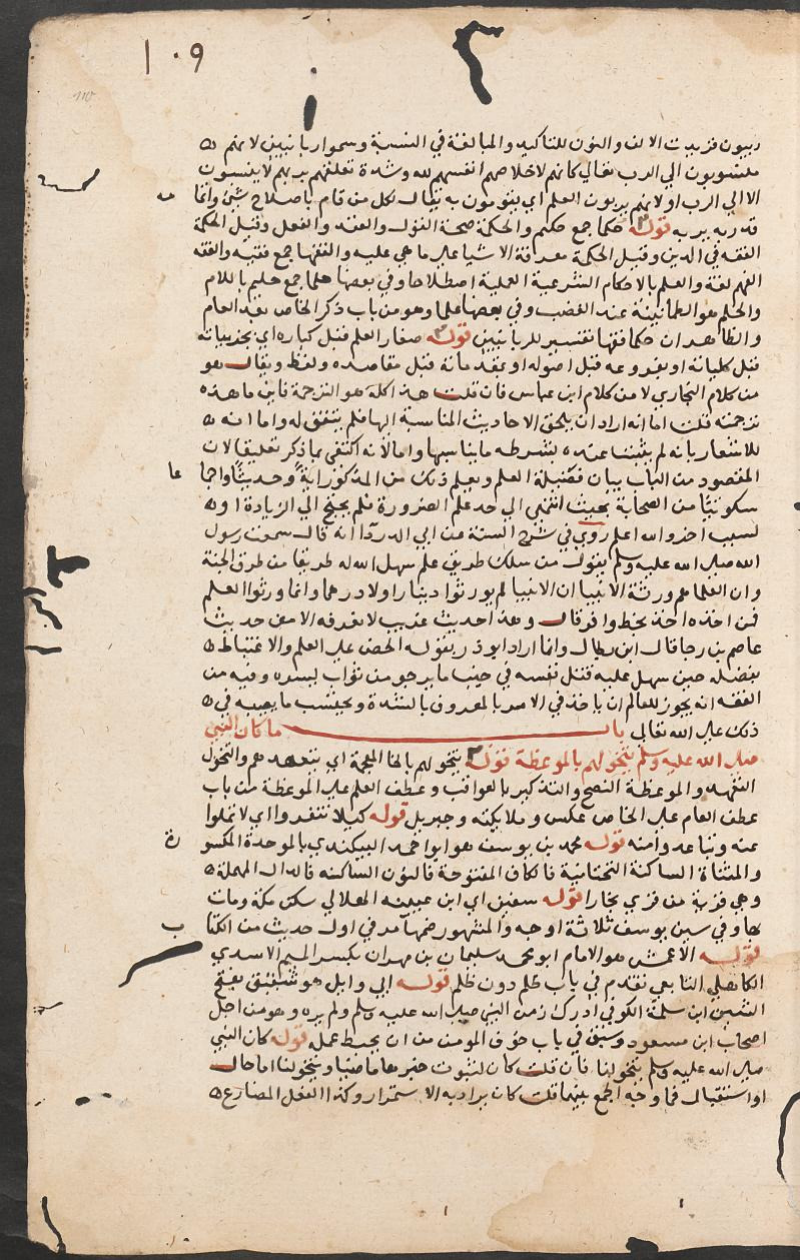 ١٠٩
ربيون فزيدت الالف والنون للتاكيد والمبالغة في النسبة وسموا ربانيين لانهم
منسوبون الي الرب تعالي كانهم لاخلاصهم انفسهم لله وشدة تعلقهم بربهم لاينسبون
الا الي الرب اولانهم يربون العلم اي يقومون به يقال لكل من قام باصلاح شئ واتمامه
قد ربه يربه قوله حكما جمع حكيم والحكمة صحة القول والعقد والفعل وقيل الحكمة
الفقه في الدين وقيل الحكمة معرفة الاشيا علي ما هي عليه والفقها جمع فقيه والفقه
الفهم لغة والعلم بالاحكام الشرعية العملية اصطلاحا وفي بعضها حلما جمع حليم باللام
والحلم هو الطمانينة عند الغضب وفي بعضها علما وهو من باب ذكر الخاص بعد العام
والظاهر ان حكما فقها تفسير للربانيين قوله صغار العلم قبل كباره اي بجزيياته
قبل كلياته او بفروعه قبل اصوله او بمقدماته قبل مقاصده ولفظ ويقال هو
من كلام البخاري لا من كلام ابن عباس فان قلت هذا كله هو الترجمة فاين ما هذه
ترجمته قلت اما انه اراد ان يلحق الاحاديث المناسبة اليها فلم يتفق له واما انه
للاشعار بانه لم يثبت عنده بشرطه ما يناسبها واما لانه اكتفي بما ذكر تعليقا لان
المقصود من الباب بيان فضيلة العلم ويعلم ذلك من المذكور اية وحديثا واجما عا
سكوتيا من الصحابة بحيث انتهي الي حد علم الضرورة فلم يحتج الي الزيادة او
لسبب اخر والله اعلم روي في شرح السنة عن ابي الدردا انه قال سمعت رسول
الله صلي الله عليه وسلم يقول من سلك طريق علم سهل الله له طريقا من طرق الجنة
وان العلما هم ورثة الانبيا ان الانبيا لم يورثوا دينارا ولا درهما وانما ورثوا العلم
فمن اخذه اخذ بحظ وافر قال وهذا حديث غريب لا نعرفه الا من حديث
عاصم بن رجا قال ابن بطال وانما اراد ابو ذر بقوله الحض علي العلم والاغتباط
بفضله حين سهل عليه قتل نفسه في جنب ما يرجو من ثواب نشره وفيه من
الفقه انه يجوز للعالم ان ياخذ في الامر بالمعروف بالشدة ويحتسب ما يصيبه في
ذلك علي الله تعالي باب ما كان النبي
صلي الله عليه وسلم يتخولهم بالموعظة قوله يتخولهم بالخا المعجمة اي يتعهدهم والتخول
التعهد والموعظة النصح والتذكير بالعواقب وعطف العلم علي الموعظة من باب
عطف العام علي الخاص عكس وملايكته وجبريل قوله كيلا ينفروا اي لا يملوا
عنه ويتباعدوا منه قوله محمد بن يوسف هو ابو احمد البيكندي بالموحدة المكسو رة
والمثناة الساكنة التحتانية فالكاف المفتوحة فالنون الساكنة فالدال المهملة
وهي قرية من قري بخارا قوله سفين اي ابن عيينة الهلالي سكن مكة ومات
بها وفي سين يوسف ثلاثة اوجه والمشهور ضمها مر في اول حديث من الكتا ب
قوله الاعمش هو الامام ابو محمد سليمان بن مهران بكسر الميم الاسدي
الكاهلي التابعي تقدم في باب ظلم دون ظلم قوله ابي وايل هو شقيق بفتح
الشين ابن سلمة الكوفي ادرك زمن النبي صلي الله عليه وسلم ولم يره وهو من اجل
اصحاب ابن مسعود وسبق في باب خوف المومن من ان يحبط عمله قوله كان النبي
صلي الله عليه وسلم يتخولنا فان قلت كان لثبوت خبرها ماضيا ويتخولنا اما حال
او استقبال فما وجه الجمع بينهما قلت كان يراد به الاستمرار وكذا الفعل المضارع